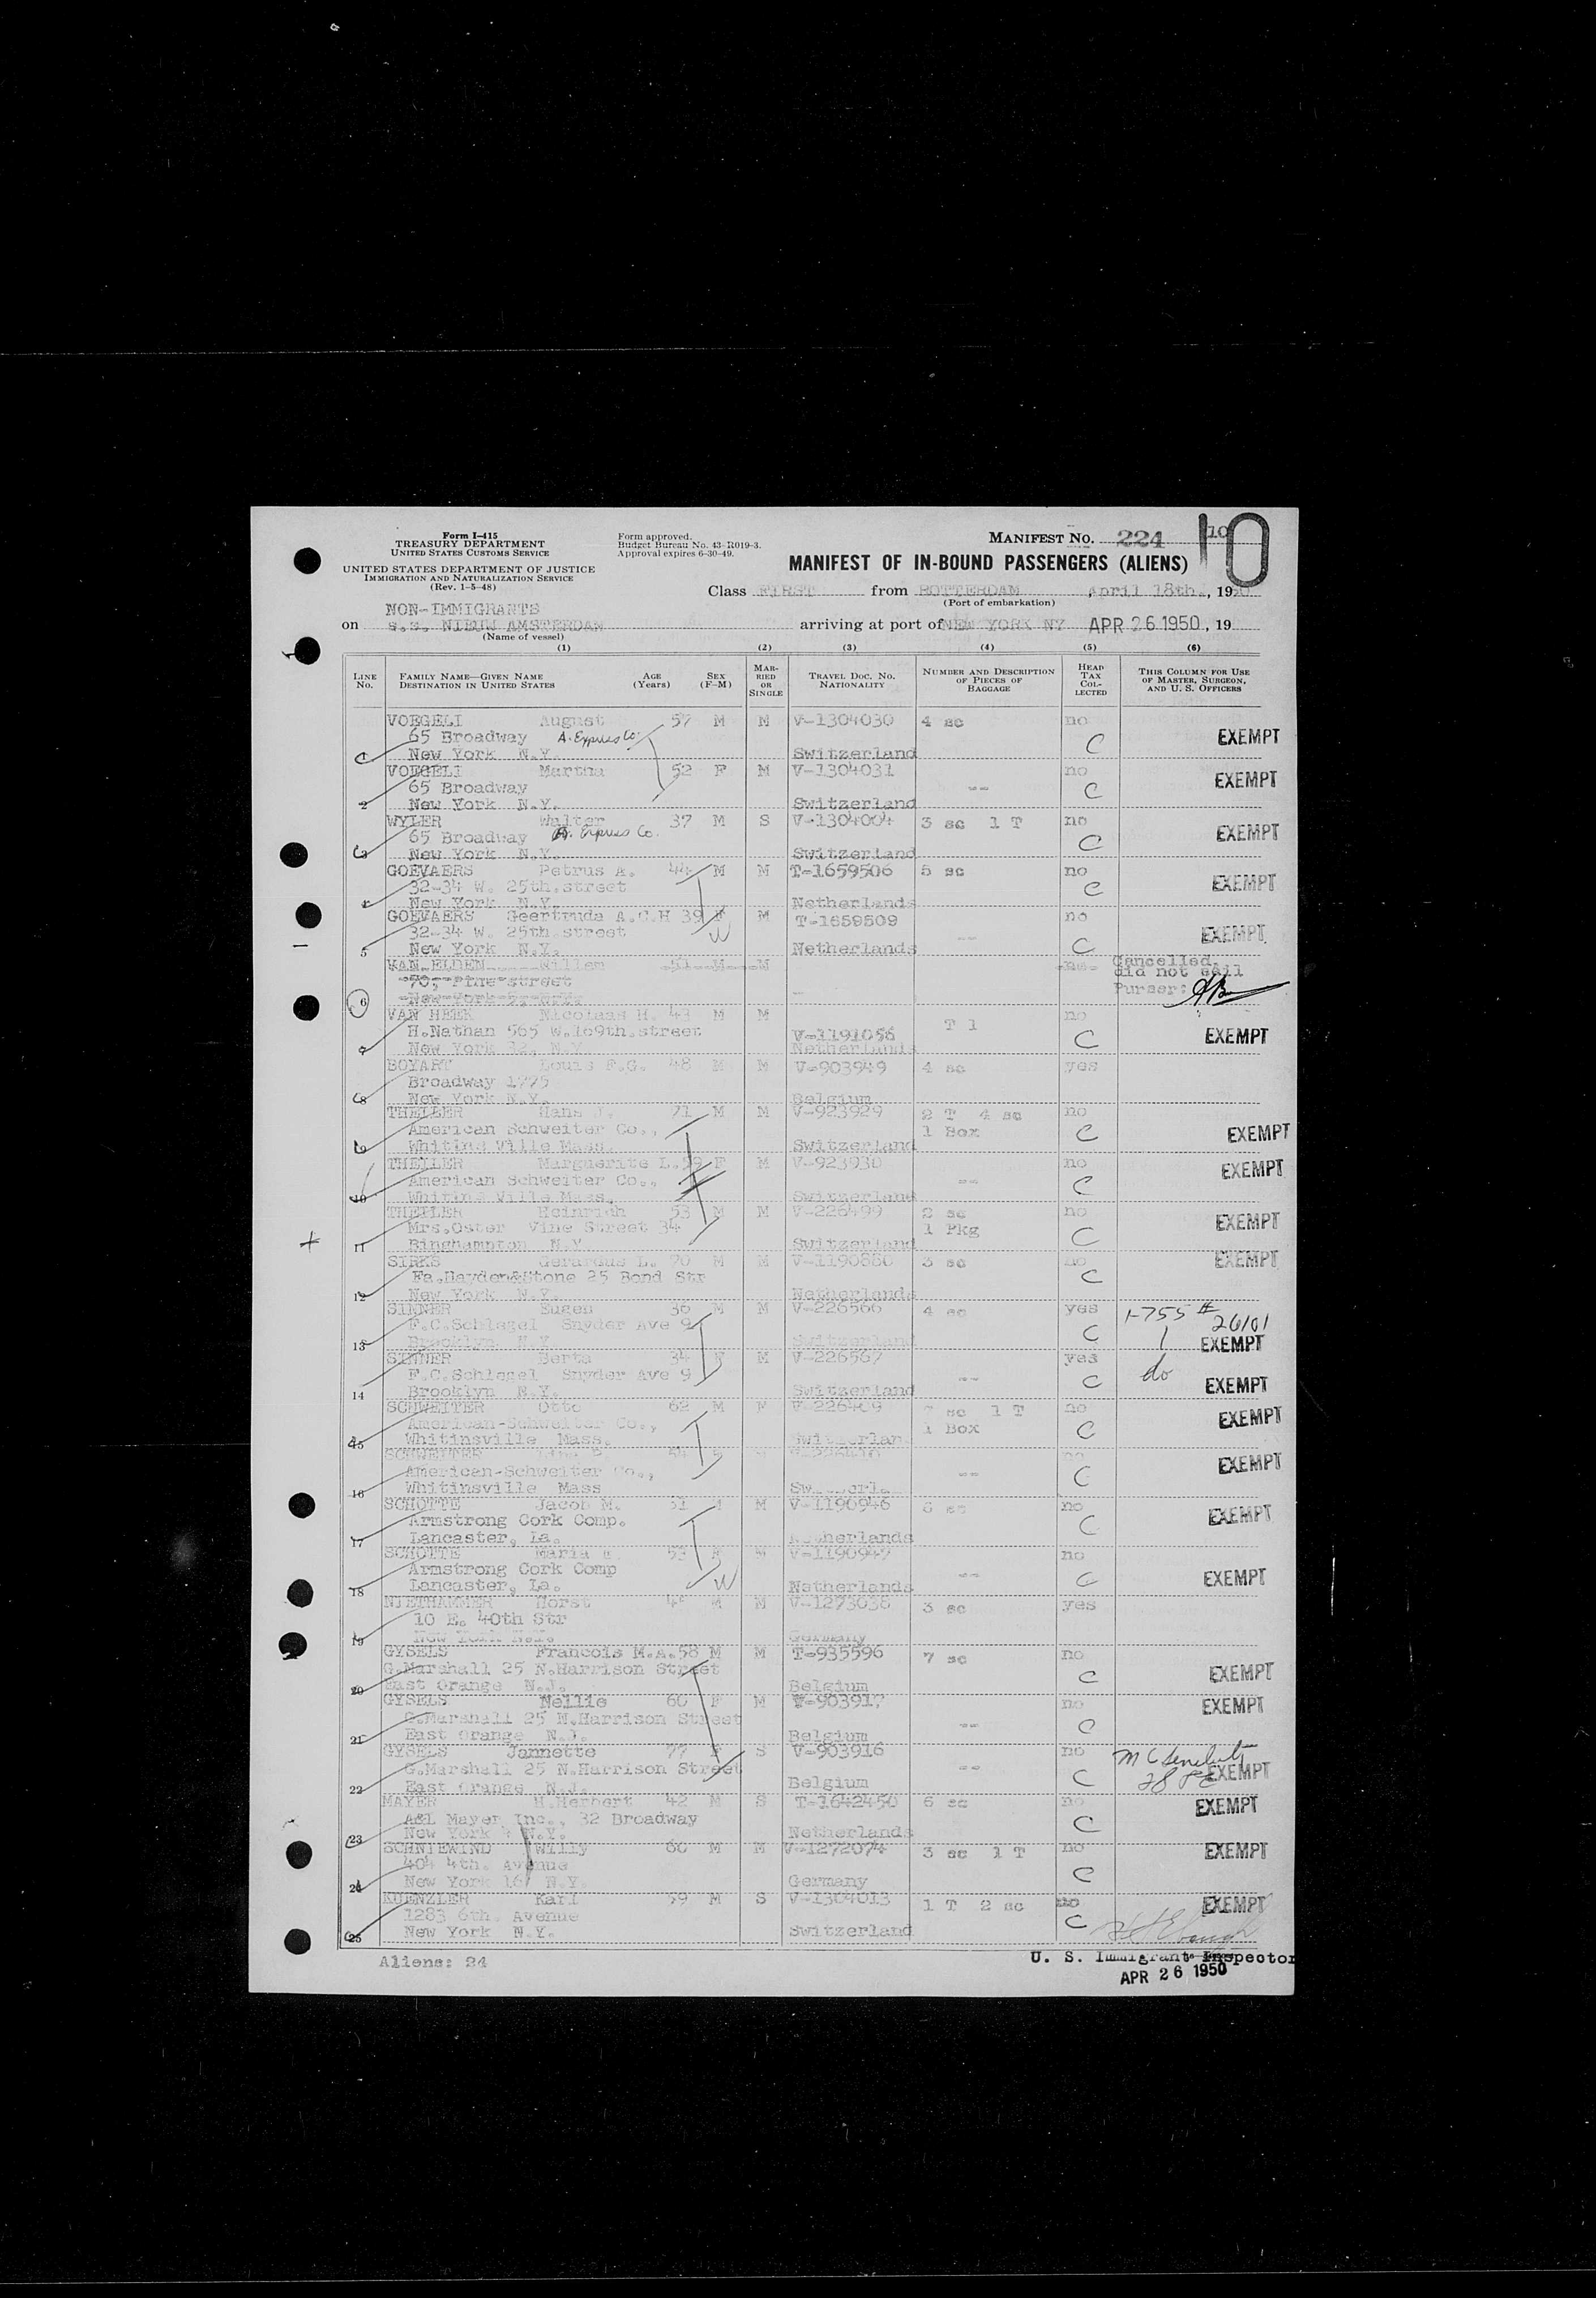 Form I-415
TREASURY DEPARTMENT
UNITED STATES CUSTOMS SERVICE
UNITED STATES DEPARTMENT OF JUSTICE
IMMIGRATION AND NATURALIZATION SERVICE
(Rev. 1-5-48)
Form approved.
Budget Bureau No. 43-R019-3.
Approval expires 6-30-49.
MANIFEST No. 224 10
10
MANIFEST OF IN-BOUND PASSENGERS (ALIENS)
Class FIRST from ROTTERDAM April 18th., 1950
(Port of embarkation)
NON-IMMIGRANTS
on s.s. NIEUW AMSTERDAM arriving at port of NEW YORK NY APR 26 1950, 19
(Name of vessel)
(1) (2) (3) (4) (5) (6)
LINE No. FAMILY NAME—GIVEN NAME DESTINATION IN UNITED STATES AGE (Years) SEX (F-M) MARRIED OR SINGLE TRAVEL DOC. NO. NATIONALITY NUMBER AND DESCRIPTION OF PIECES OF BAGGAGE HEAD TAX COLLECTED THIS COLUMN FOR USE OF MASTER, SURGEON, AND U. S. OFFICERS
VOEGELI August 57 M M V-1304030 4 sc no
65 Broadway A. Express Co. C EXEMPT
New York N.Y. Switzerland
VOEGELI Martha 52 F M V-1304031 no
65 Broadway -- C EXEMPT
2 New York N.Y. Switzerland
WYLER Walter 37 M S V-1304004 3 sc 1 T no
65 Broadway A. Express Co. C EXEMPT
3 New York N.Y. Switzerland
GOEVAERS Petrus A. 44 M M T-1659506 5 sc no
32-34 W. 25th.street C EXEMPT
4 New York N.Y. Netherlands
GOEVAERS Geertruda A.C.H 39 F M T-1659509 no
32-34 W. 25th street W -- EXEMPT
5 New York N.Y. Netherlands C
VAN ELDEN Willem 51 M M no Cancelled,
70, Pine street did not sail
6 New York N.Y. Purser:
VAN HEEK Nicolaas H. 43 M M T 1 no
H.Nathan 565 W.169th.street V-1191056 C EXEMPT
7 New York 32, N.Y. Netherlands
BOYART Louis F.G. 48 M M V-903949 4 sc yes
Broadway 1775
8 New York N.Y. Belgium
THEILER Hans J. 71 M M V-923929 2 T 4 sc no
American Schweiter Co., 1 Box C EXEMPT
9 Whiting Ville Mass. Switzerland
THEILER Marguerite L. F M V-923930 no
American Schweiter Co., -- C EXEMPT
10 Whiting Ville Mass. Switzerland
THEILER Heinrich 53 M M V-226499 2 sc no
Mrs.Oster Vine Street 34 1 Pkg C EXEMPT
11 Binghampton N.Y. Switzerland
SIRKS Gerardus L. 70 M M V-1190880 3 sc no EXEMPT
Fa.Hayden&Stone 25 Bond Str C
12 New York N.Y. Netherlands
SINNER Eugen 36 M M V-226566 4 sc yes 1-755 # 26101
F.C.Schlegel Snyder Ave 9 C EXEMPT
13 Brooklyn N.Y. Switzerland
SINNER Berta 34 F M V-226567 yes do
F.C.Schlegel Snyder Ave 9 -- C EXEMPT
14 Brooklyn N.Y. Switzerland
SCHWEITER Otto 62 M V-226409 sc 1 T no
American-Schweiter Co., 1 Box C EXEMPT
15 Whitinsville Mass. Switzerland
SCHWEITER
American-Schweiter Co., -- C EXEMPT
16 Whitinsville Mass
SCHOTTE Jacob M. 51 M V-1190946 sc no
Armstrong Cork Comp. C EXEMPT
17 Lancaster, La. Netherlands
SCHOTTE Maria 53 F V-1190947 no
Armstrong Cork Comp -- C EXEMPT
18 Lancaster, La. W Netherlands
NIETHAMMER Horst M M V-1273038 3 sc yes
10 E. 40th Str
19 New York N.Y. Germany
GYSELS Francois M.A. 58 M M T-935596 7 sc no
G.Marshall 25 N.Harrison Street C EXEMPT
20 East Orange N.J. Belgium
GYSELS Nellie 60 F M V-903917 no EXEMPT
G.Marshall 25 N.Harrison Street -- C
21 East Orange N.J. Belgium
GYSELS Jannette 77 F S V-903916 no
G.Marshall 25 N.Harrison Street -- C EXEMPT
22 East Orange N.J. Belgium
MAYER H.Herbert 42 M S T-1642450 6 sc no EXEMPT
A&L Mayer Inc., 32 Broadway C
23 New York 4 N.Y. Netherlands
SCHNIEWIND Willy 60 M M V-1272074 3 sc 1 T no EXEMPT
404 4th. Avenue C
24 New York 16 N.Y. Germany
KUENZLER Karl 59 M S V-1304013 1 T 2 sc no EXEMPT
1283 6th. Avenue C
25 New York N.Y. Switzerland
Aliens: 24
U. S. Immigrant Inspector
APR 26 1950